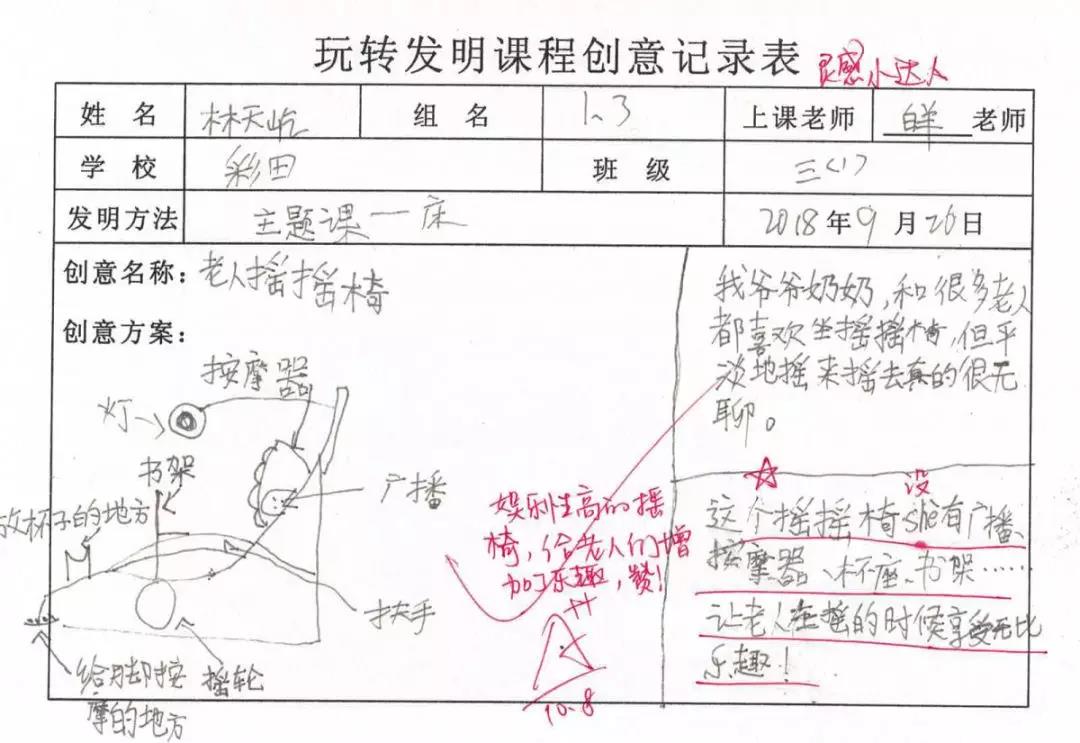 玩转发明课程创意记录表
灵感小达人
姓 名 林天屹 组 名 1、3 上课老师 老师
学 校 彩田 班 级 三(1)
发明方法 主题课一床 2018年9月26日
创意名称：老人摇摇椅
创意方案：
按摩器
灯
书架
放杯子的地方
广播
扶手
给脚按
摩的地方
摇轮
我爷爷奶奶,和很多老人
都喜欢坐摇摇椅,但平
淡地摇来摇去真的很无
聊。
娱乐性高的摇
椅，给老人们增
加了乐趣，赞！
A++
10.8
设
这个摇摇椅she有广播、
按摩器、杯座、书架……
让老人在摇的时候享受无比
乐趣！